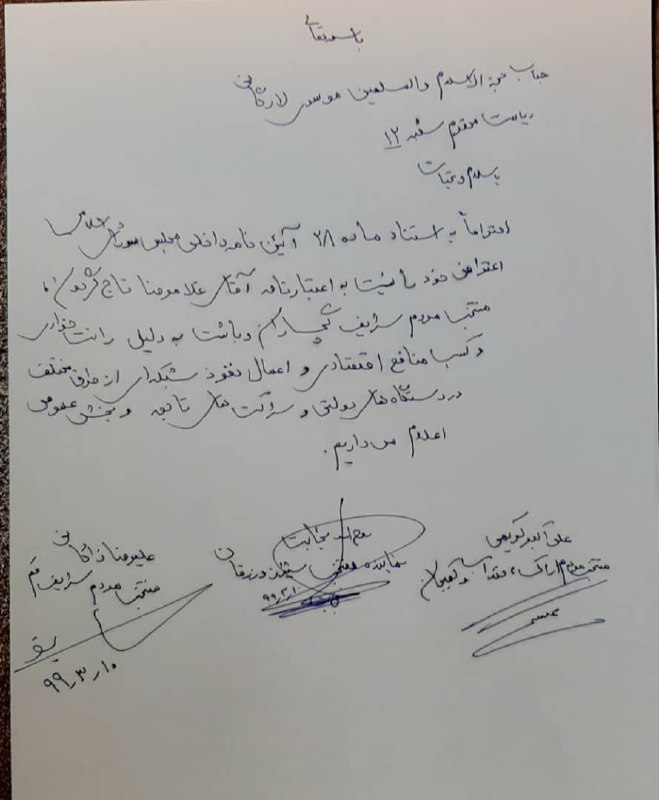 باسمه تعالی
جناب حجة الاسلام والمسلمین موسوی لارگانی
ریاست محترم شعبه ۱۲
باسلام و تحیات
احتراماً به استناد ماده ۲۸ آئین نامه داخلی مجلس شورای اسلامی
اعتراض خود را نسبت به اعتبارنامه آقای غلامرضا تاجگردون،
منتخب مردم شریف گچساران و باشت به دلیل رانت خواری
و کسب منافع اقتصادی و اعمال نفوذ شبکه‌ای از طرق مختلف
در دستگاه های دولتی و شرکت های تابعه و بخش عمومی
اعلام می داریم.
علی اکبر کریمی
منتخب مردم اراک، و کمیجان
روح اله نجابت
نماینده منتخب شیراز و زرقان
علیرضا زاکانی
منتخب مردم شریف قم
۹۹٫۳٫۱۰